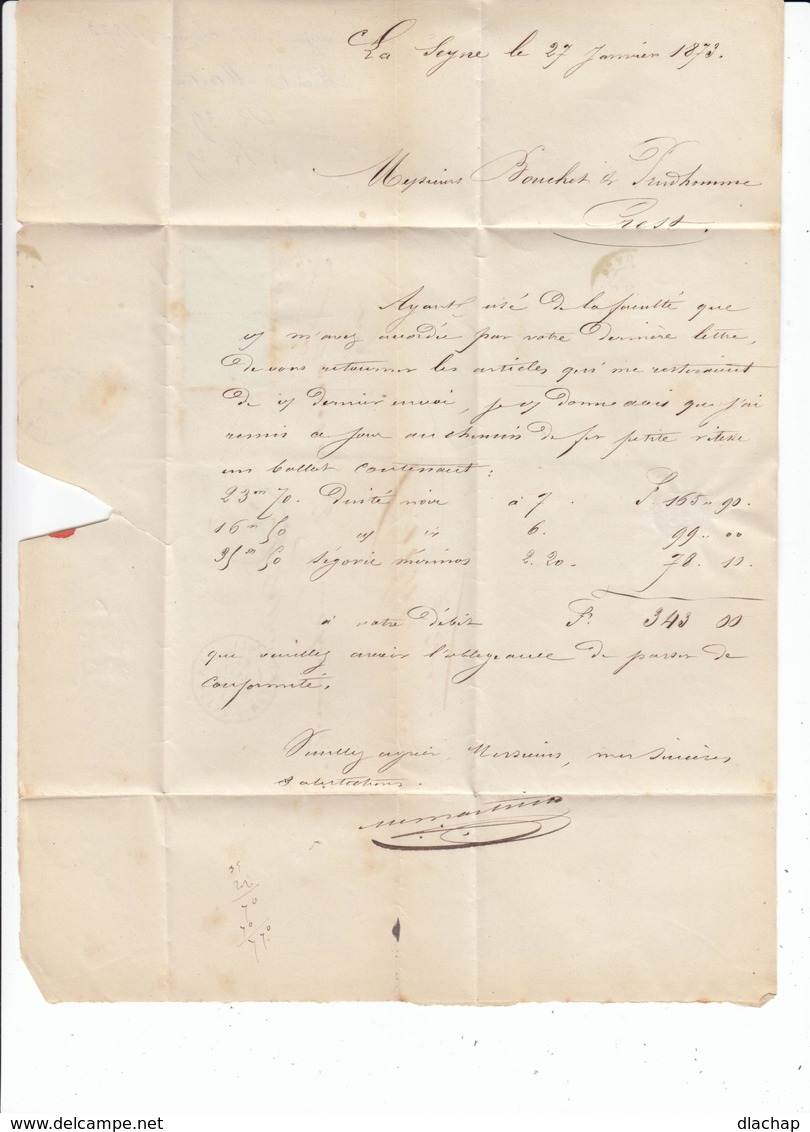 La Seyne le 27 Janvier 1873.
Messieurs Bouchet & Prudhomme
Crest.
Ayant usé de la faculté que
vs m'avez accordée par votre dernière lettre,
de vous retourner les articles qui me resteraient
de vs dernier envoi, je vs donne avis que j'ai
remis ce jour au chemin de fer petite vitesse
un ballot contenant :
23m 70. noir à 7. F. 165" 90.
16m 50 6. 99" 00
35m 50 ségovie mérinos 2.20. 78. 10.
à votre Débit F. 343 00
que veuillez avoir l'obligeance de passer de
conformité.
Veuillez agréer Messieurs, mes sincères
salutations.
35
70
70
770
www.delcampe.net
dlachap